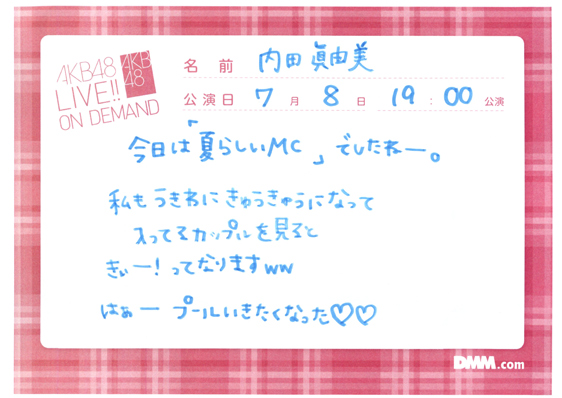 AKB48
LIVE!!
ON DEMAND
AKB
48
名前 内田眞由美
公演日 7月8日 19:00公演
今日は「夏らしいMC」でしたねー。
私もうきわにきゅうきゅうになって
入ってるカップルを見ると
きぃー!ってなりますww
はぁー プールいきたくなった♡♡
DMM.com